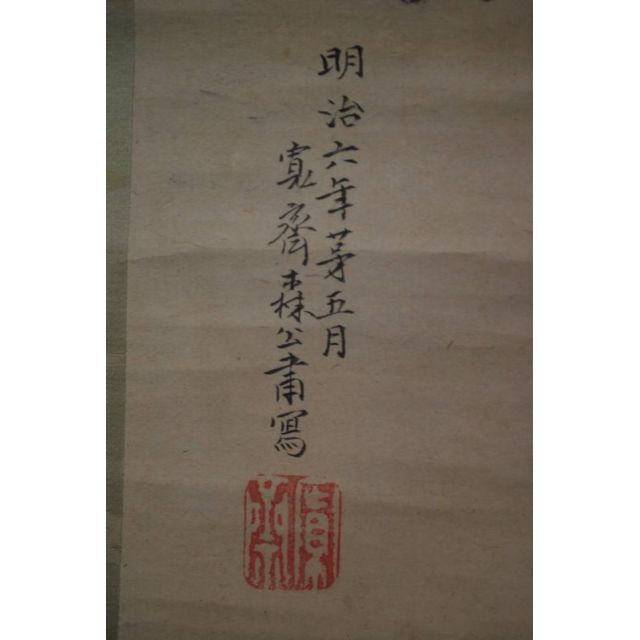 明治六年第五月
寛齋森公肅寫